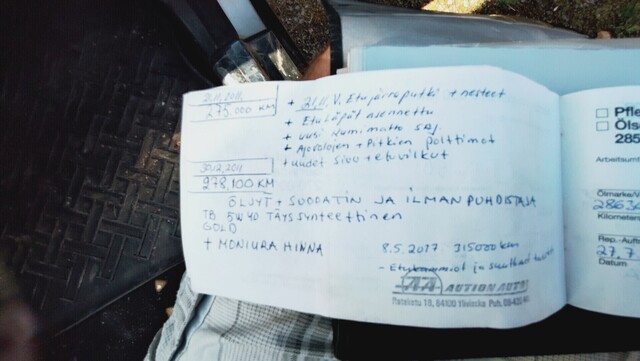 275.000 KM
+ 21.11. V. Etujarruputki + nesteet
+ Etuläpät asennettu
+ uusi kumimatto sarj.
+ Ajovalojen + Pitkien polttimot
+ uudet sivu + etuvilkut
278,100 KM
ÖLJYT + SUODATIN JA ILMANPUHDISTAJA
TB 5W40 TÄYSSYNTEETTINEN
GOLD
+ MONIURA HIHNA
8.5.2017 315000 km
- Etu ja
AA AUTION AUTO
84100 Ylivieska Puh.
Pfle
Ölse
285
Arbeitsumf
Ölmarke/V
28634
Kilometer
Rep.-Auft
27.7
Datum